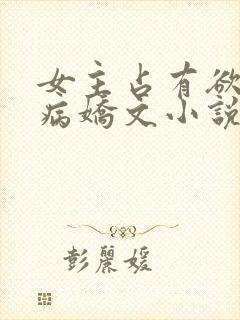 女主占有欲
病嬌文小說
彭麗媛